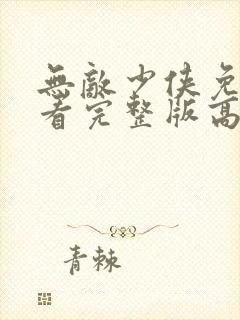 無敵少俠免
看完整版高
青棘